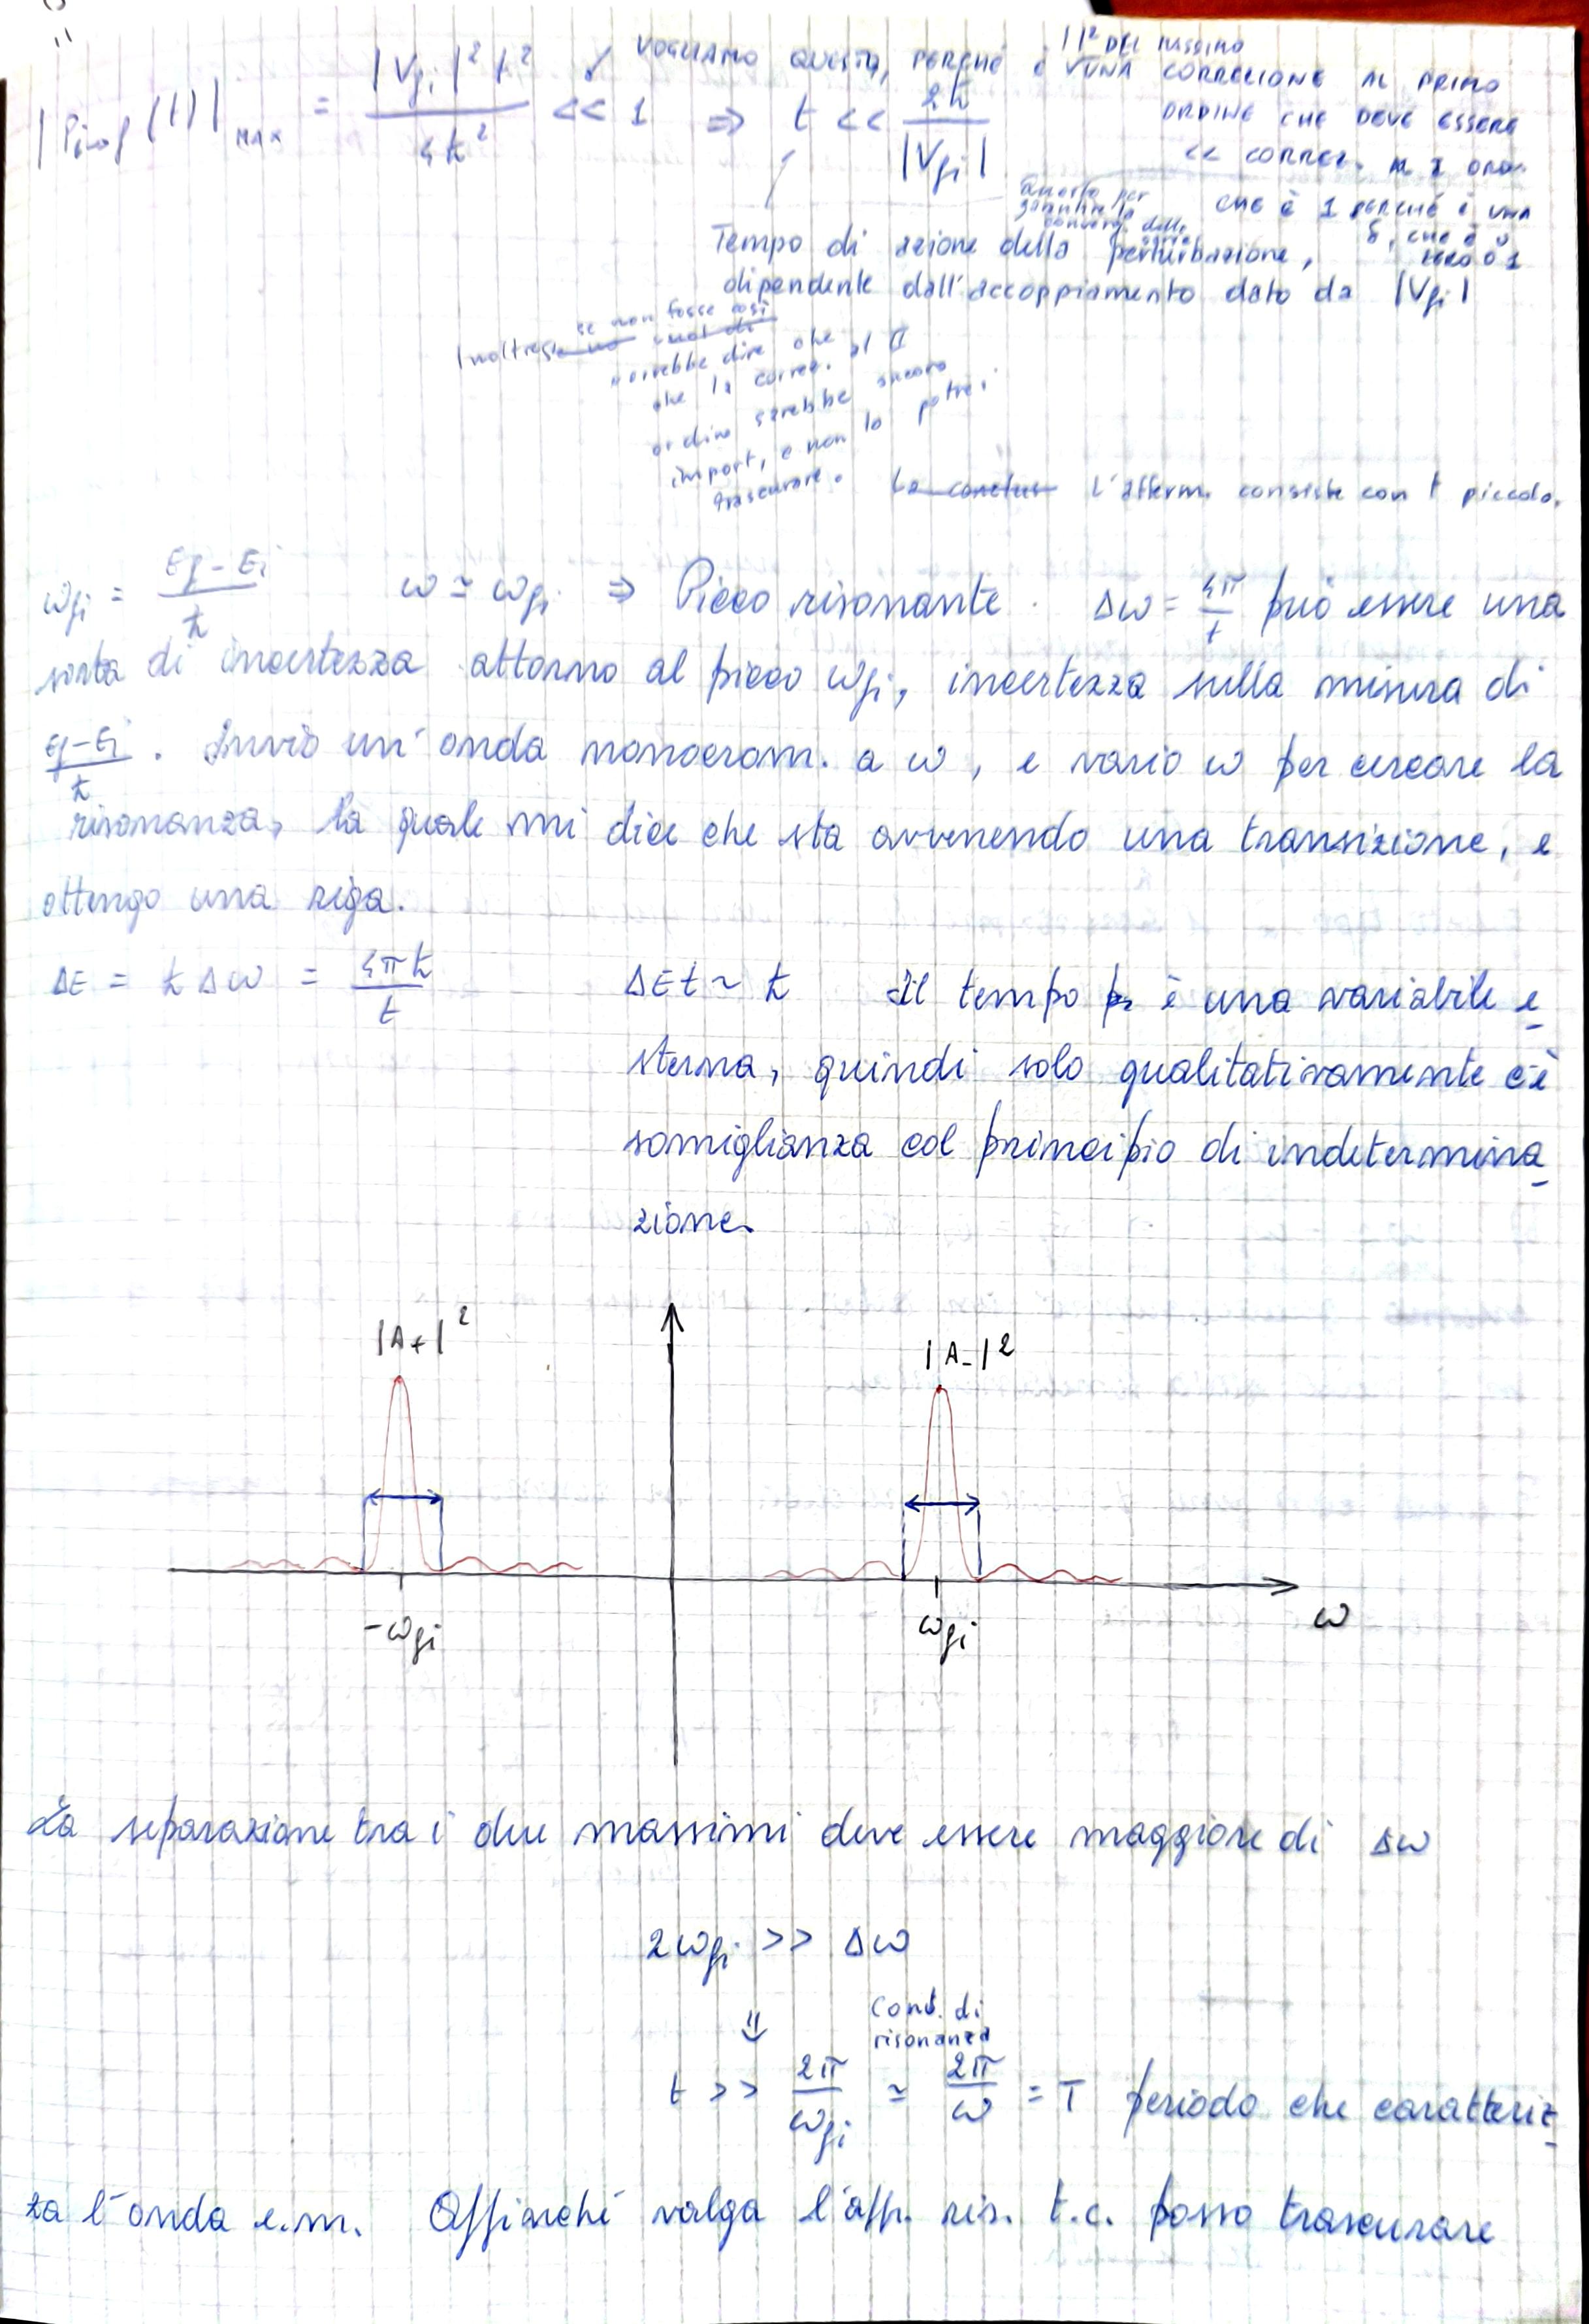 |P i→f (t)| MAX = |Vfi|² t² / 4ħ² << 1 ⇒ t << 2ħ / |Vfi|
VOGLIAMO QUESTO, PERCHÉ È UNA CORREZIONE AL PRIMO
| |² DEL MASSIMO
ORDINE CHE DEVE ESSERE
<< CORREZ. AL I ORD.
CHE È 1 PERCHÉ È UNA
δ, CHE È 0
ZERO O 1
Questo per
garantire la
converg. della
Tempo di azione della perturbazione,
dipendente dall'accoppiamento dato da |Vfi|
Inoltre se non fosse così
vorrebbe dire che
che la correz. al II
ordine sarebbe ancora
import., e non lo potrei
trascurare. La conclus L'afferm. consiste con t piccolo.
ωfi = Ef - Ei / ħ ω ≃ ωfi ⇒ Picco risonante. Δω = 4π / t può essere una
sorta di incertezza attorno al picco ωfi, incertezza sulla misura di
Ef-Ei / ħ . Invio un'onda monocrom. a ω, e vario ω per cercare la
risonanza, la quale mi dice che sta avvenendo una transizione, e
ottengo una riga.
ΔE = ħ Δω = 4πħ / t ΔE t ~ ħ Il tempo è una variabile e
sterna, quindi solo qualitativamente c'è
somiglianza col principio di indetermina
zione.
|A+|² |A-|²
-ωfi ωfi ω
La separazione tra i due massimi deve essere maggiore di Δω
2ωfi >> Δω
⇓ Cond. di
risonanza
t >> 2π / ωfi ≃ 2π / ω = T periodo che caratteriz
za l'onda e.m. Affinché valga l'app. ris. t.c. posso trascurare